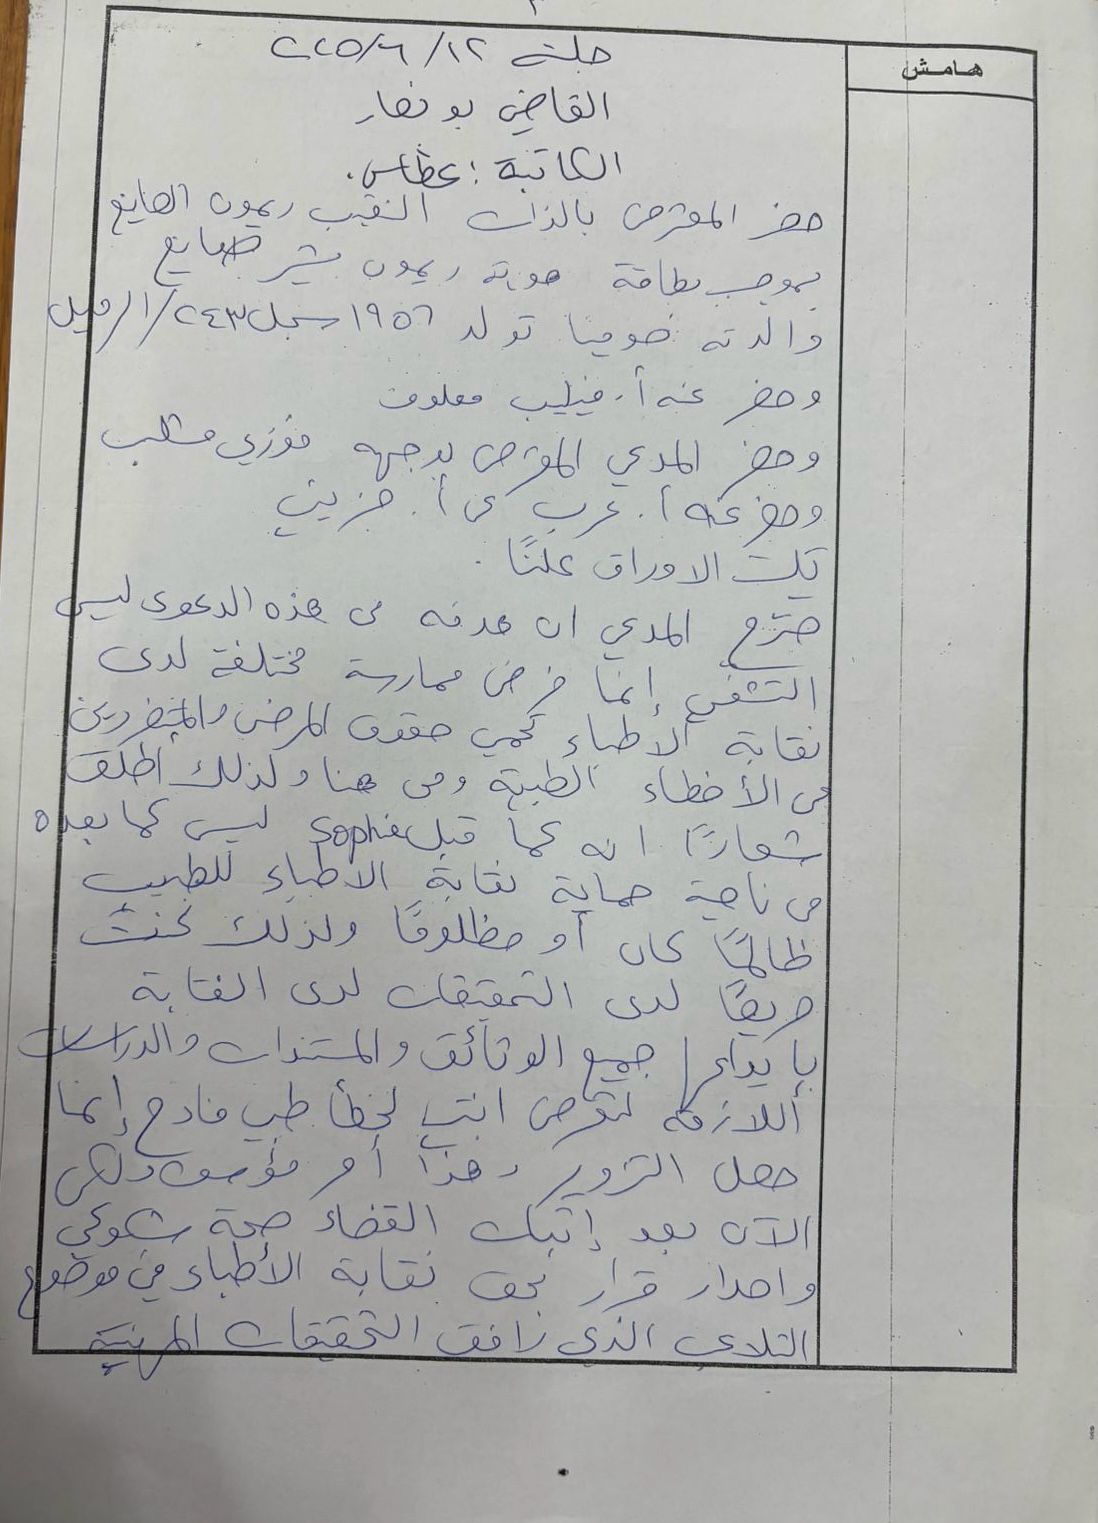 هامش
جلسة ١٢/٦/٢٠٢٥
القاضي بو نصار
الكاتبة : عطاس.
حضر المعترض بالذات النقيب ريمون الصايغ
بموجب بطاقة هوية ريمون بشير صايغ
والدته تولد ١٩٥٦ سجل ٢٤٣/الرميل
وحضر عنه أ. فيليب معلوف
وحضر المدعي المعترض بوجهه فوزي مشلب
وحضر عنه أ. عرب عن أ. جزيني
تليت الاوراق علنًا.
صرّح المدعي ان هدفه من هذه الدعوى ليس
التشفي إنما فرض ممارسة مختلفة لدى
نقابة الأطباء تحمي حقوق المرضى والمتضررين
من الأخطاء الطبية ومن هنا ولذلك أطلق
شعارًا انه كما قبل sophie ليس كما بعده
من ناحية حماية نقابة الاطباء للطبيب
ظالمًا كان أو مظلومًا ولذلك كنت
حريصًا لدى التحقيقات لدى النقابة
بإيداعها جميع الوثائق والمستندات والدراسات
اللازمة لتعرض ابنتي لخطأ طبي فادح إنما
حصل التزوير وهذا أمر مؤسف ولكن
الآن بعد إثبات القضاء صحة شكوكي
واصدار قرار بحق نقابة الأطباء في موضوع
التلاعب الذي رافق التحقيقات المهنية